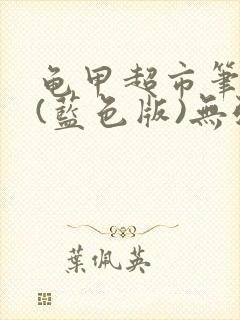 龟甲超市筆
(藍色版)無
葉佩英